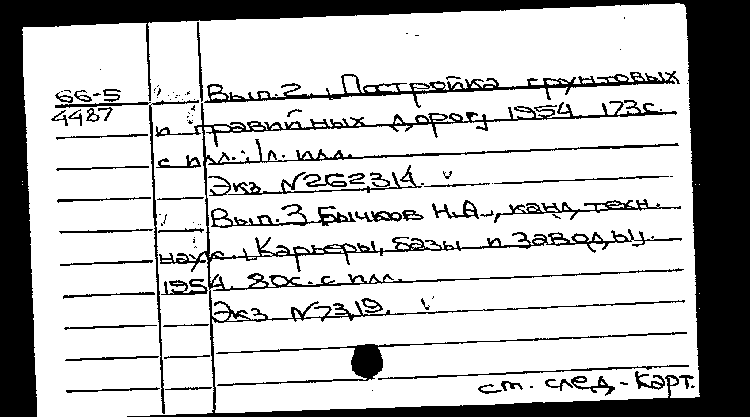 66-5
4487
Вып. 2. Постройка грунтовых
и гравийных дорог, 1954. 173с.
с илл.; 1л. илл.
Экз. №262,314.
Вып. 3 Бычков Н.А., канд. техн.
наук. Карьеры, базы и заводы.
1954. 80с. с илл.
Экз. №7319.
см. след. карт.